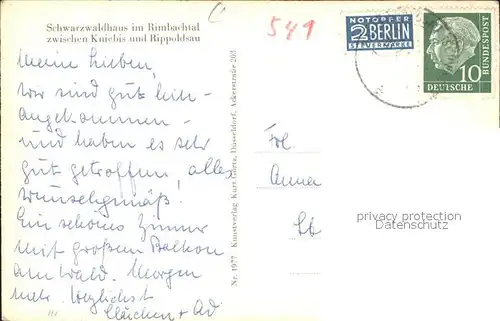 Schwarzwaldhaus im Rimbachtal
zwischen Kniebis und Rippoldsau
541
NOTOPFER
2 BERLIN
STEUERMARKE
DEUTSCHE
10
BUNDESPOST
Meine Lieben,
wir sind gut hin-
angekommen -
und haben es sehr
gut getroffen, alles
wunschgemäß!
Ein schönes Zimmer
mit großem Balkon
am Wald. Morgen
mehr. Herzlichst
+ Ad
Nr. 1977 Kunstverlag Kurt Düsseldorf, Ackerstraße 203
Frl.
Anna
privacy protection
Datenschutz